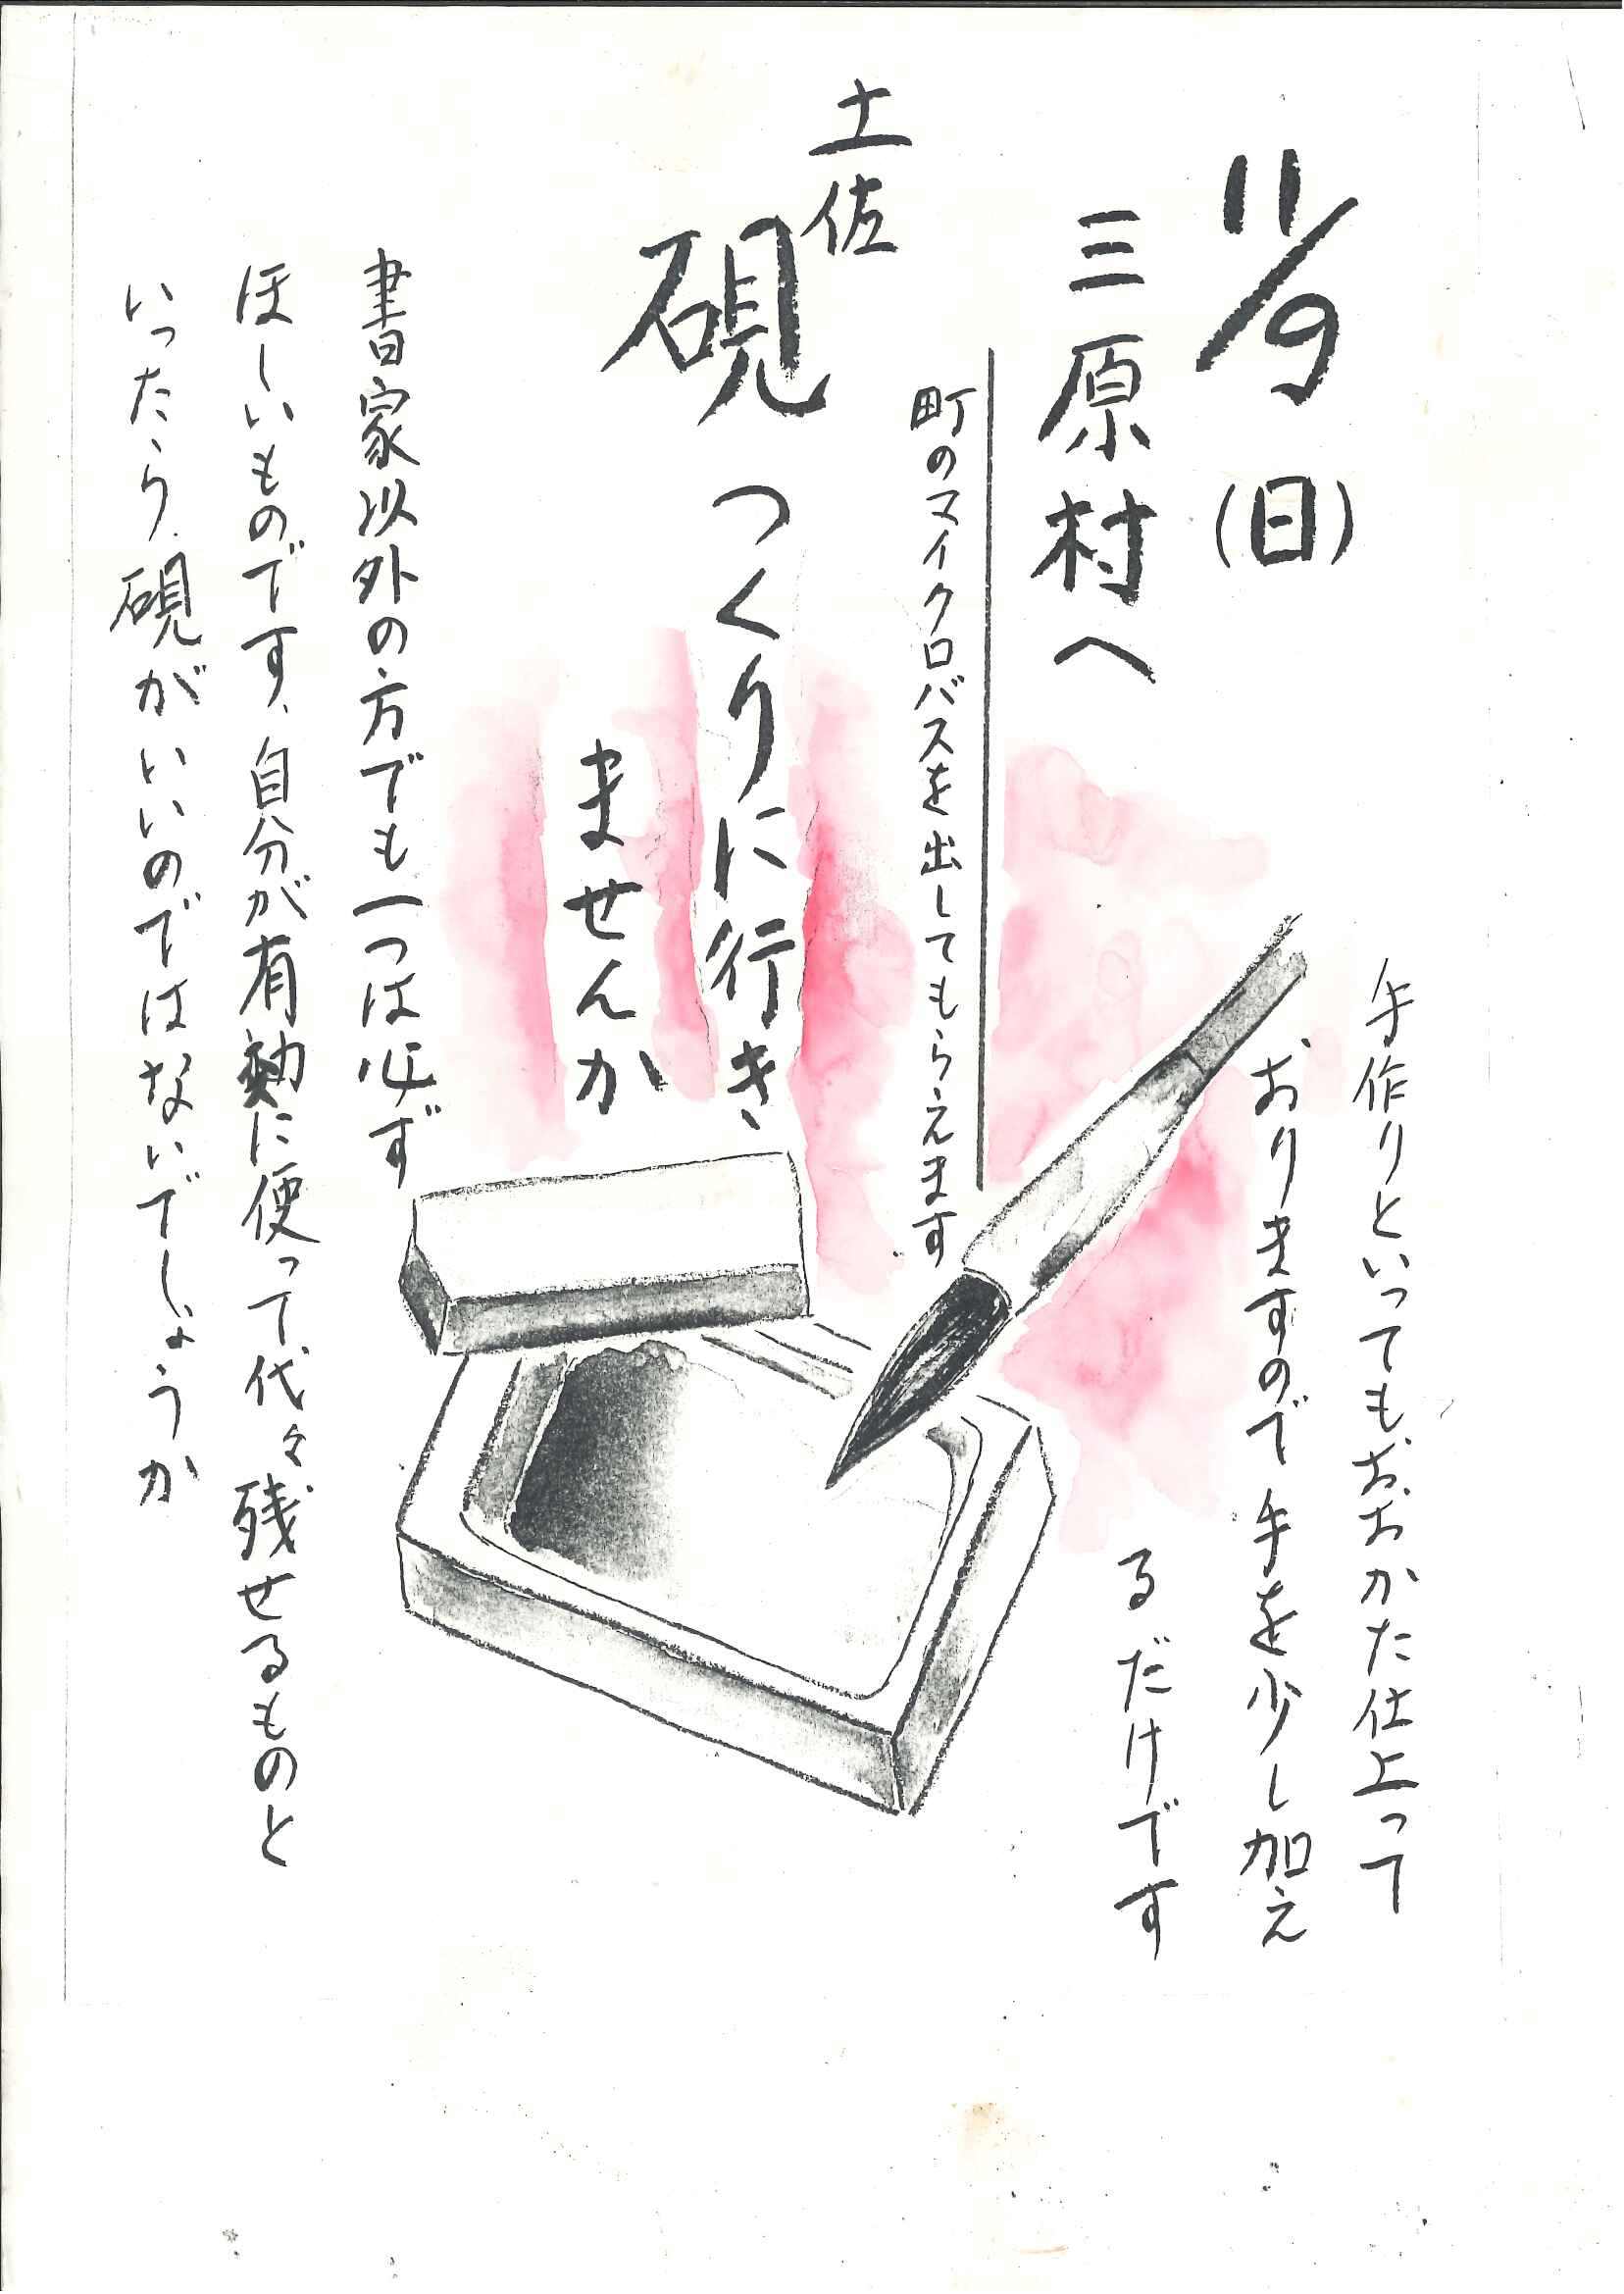 11/9(日)
三原村へ
町のマイクロバスを出してもらえます
土佐
硯つくりに行き
ませんか
手作りといってもおおかた仕上って
おりますので手を少し加え
るだけです
書家以外の方でも一つは必ず
ほしいものです、自分が有効に使って代々残せるものと
いったら、硯がいいのではないでしょうか